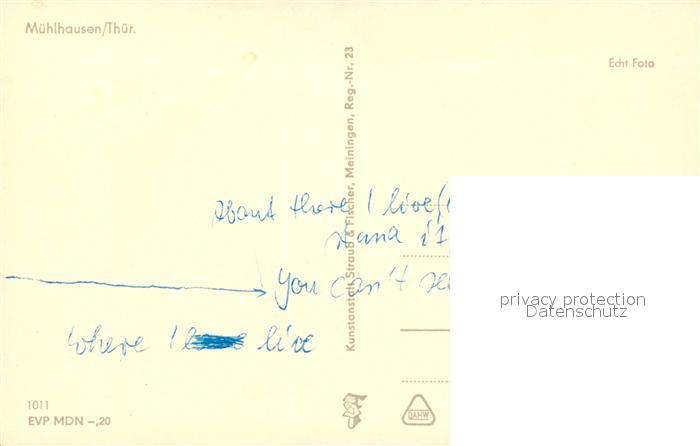 Mühlhausen/Thür.
Echt Foto
Kunstanstalt Straub & Fischer, Meiningen, Reg.-Nr. 23
About there I live
it
You can't
where I live
privacy protection
Datenschutz
1011
EVP MDN –,20
DAHW